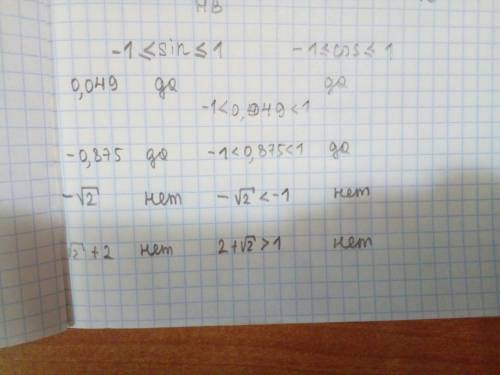 НВ
-1 ≤ sin ≤ 1 -1 ≤ cos ≤ 1
0,049 да да
-1 < 0,049 < 1
-0,875 да -1 < 0,875 < 1 да
-√2 нет -√2 < -1 нет
√2 + 2 нет 2 + √2 > 1 нет